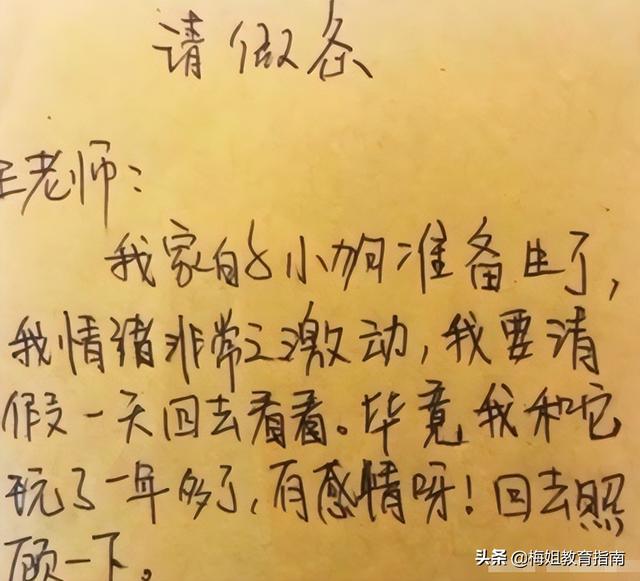 请假条
王老师：
我家的小狗准备生了，
我情绪非常之激动，我要请
假一天回去看看。毕竟我和它
玩了一年多了，有感情呀！回去照
顾一下。
头条 @梅姐教育指南